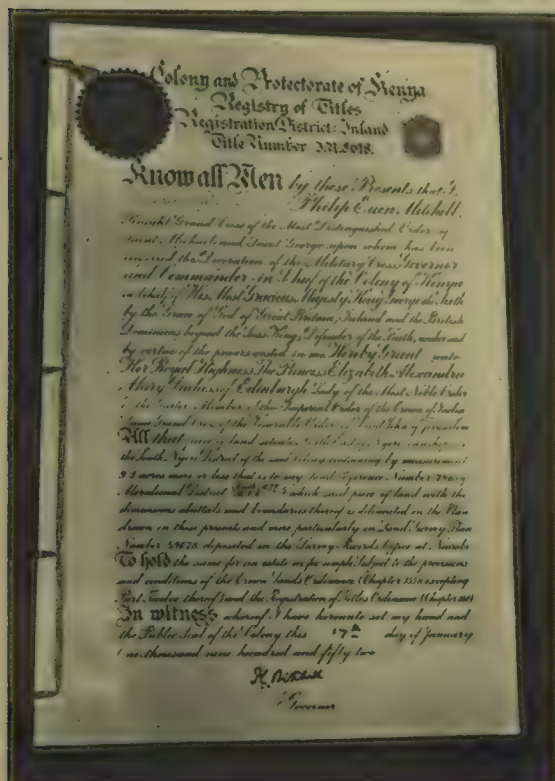 Colony and Protectorate of Kenya
Registry of Titles
Registration District: Inland
Title Number I.R. 8018.
Know all Men by these Presents that I,
Philip Euen Mitchell,
Knight Grand Cross of the Most Distinguished Order of
Saint Michael and Saint George upon whom has been
conferred the Decoration of the Military Cross Governor
and Commander-in-Chief of the Colony of Kenya
on behalf of His Most Gracious Majesty King George the Sixth
by the Grace of God of Great Britain, Ireland and the British
Dominions beyond the Seas King, Defender of the Faith, under and
by virtue of the powers vested in me Hereby Grant unto
Her Royal Highness, The Princess Elizabeth Alexandra
Mary Duchess of Edinburgh Lady of the Most Noble Order
of the Garter Member of the Imperial Order of the Crown of India
Dame Grand Cross of the Venerable Order of Saint John of Jerusalem
All that piece of land situate Nyeri Township in
the South Nyeri District of the said Colony containing by measurement
9.5 acres more or less that is to say Land Reference Number
Meridional District which said piece of land with the
dimensions abuttals and boundaries thereof is delineated on the Plan
drawn on these presents and more particularly on Land Survey Plan
Number deposited in the Survey Records Office at Nairobi
To hold the same for an estate in fee simple Subject to the provisions
and conditions of the Crown Lands Ordinance (Chapter excepting
Part Twelve thereof) and the Registration of Titles Ordinance (Chapter
In witness whereof I have hereunto set my hand and
the Public Seal of the Colony this 17th day of January
One thousand nine hundred and fifty two
P. Mitchell
Governor